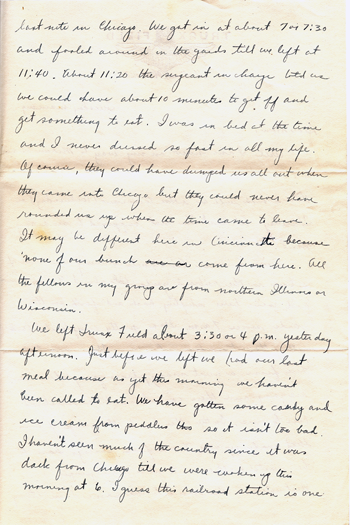 last nite in Chicago. We got in at about 7 or 7:30
and fooled around in the yards till we left at
11:40. About 11:20 the sergeant in charge told us
we could have about 10 minutes to get off and
get something to eat. I was in bed at the time
and I never dressed so fast in all my life.
Of course, they could have dumped us all out when
they came into Chicago but they could never have
rounded us up when the time came to leave.
It may be different here in Cincinnati because
none of our bunch come from here. All
the fellows in my group are from northern Illinois or
Wisconsin.
We left Truax Field about 3:30 or 4 p.m. yesterday
afternoon. Just before we left we had our last
meal because as yet this morning we haven't
been called to eat. We have gotten some candy and
ice cream from peddlers tho so it isn't too bad
I haven't seen much of the country since it was
dark from Chicago till we were waking up this
morning at 6. I guess this railroad station is one